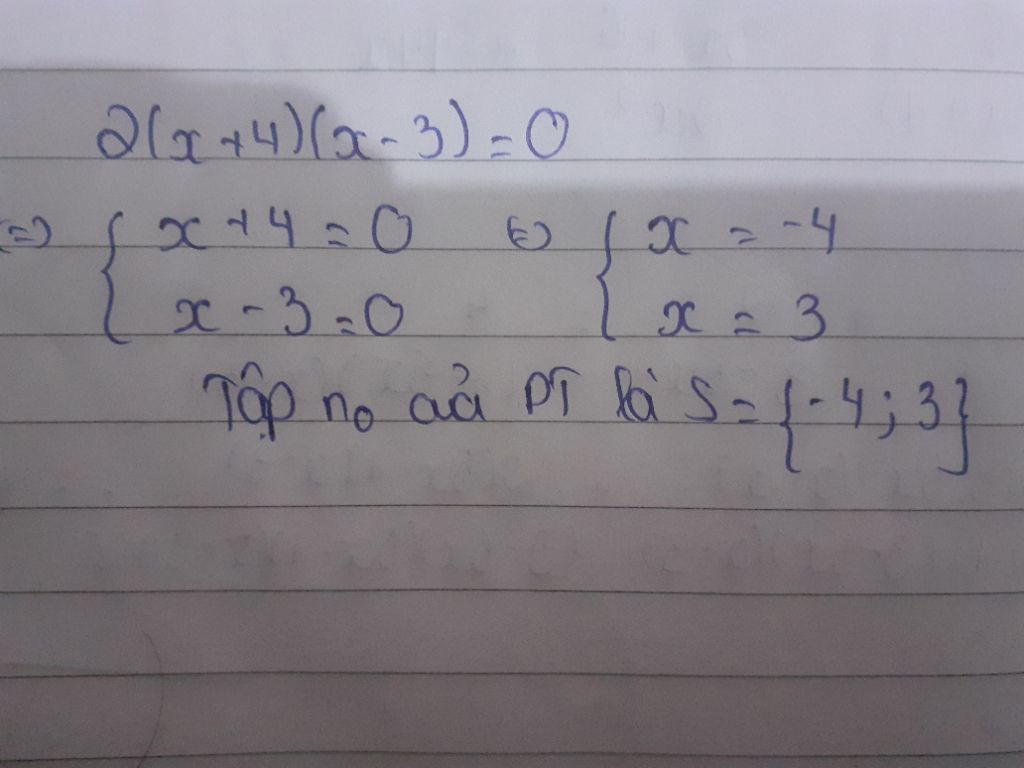 2(x+4)(x-3)=0
<=> { x+4=0 <=> { x = -4
x-3=0 x = 3
Tập no của PT là S={-4;3}